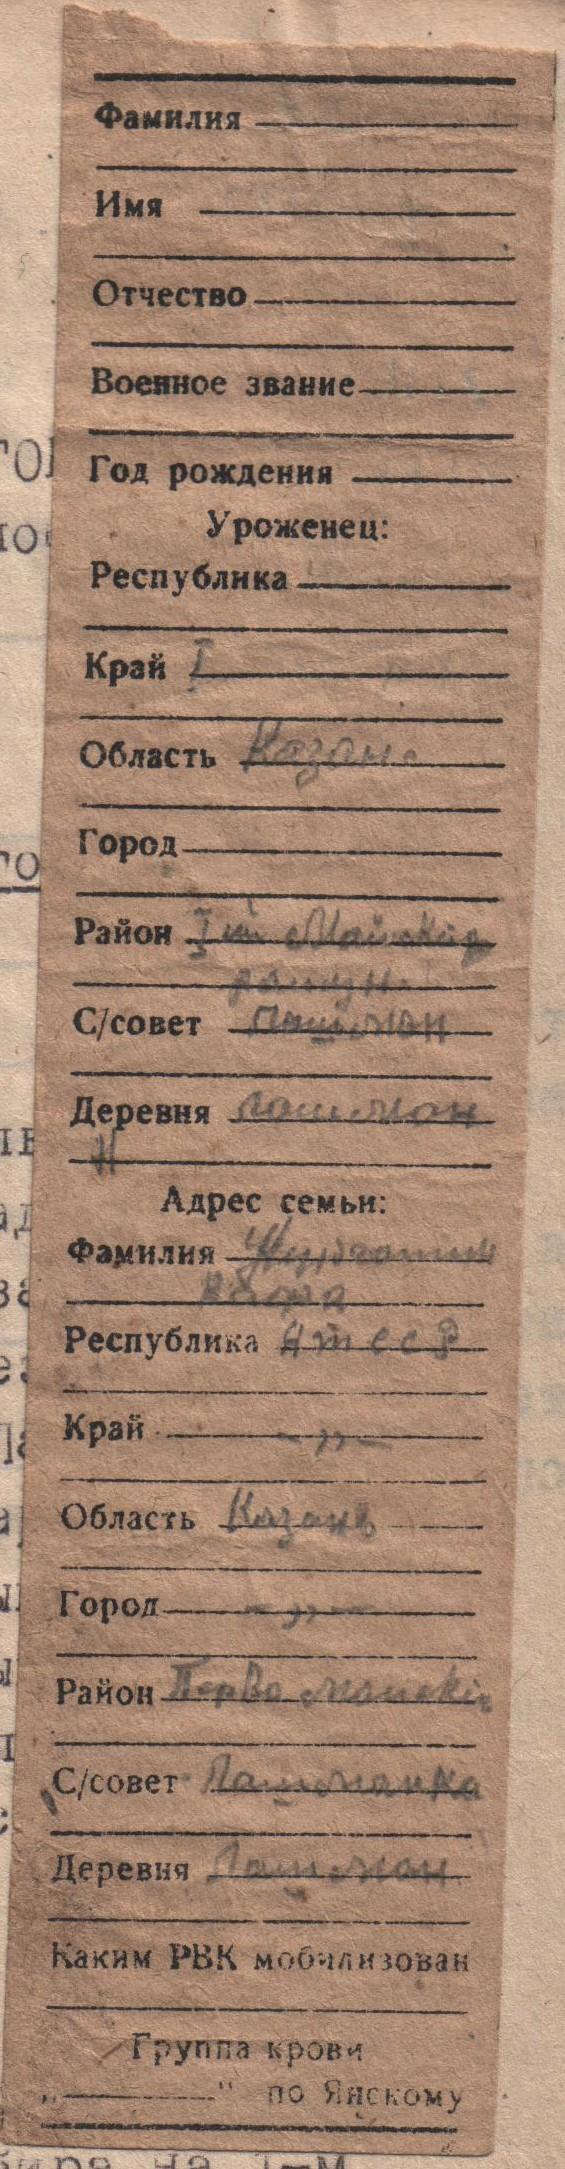 Фамилия
Имя
Отчество
Военное звание
Год рождения
Уроженец:
Республика
Край I
Область Казань
Город
Район I й Майский
район
С/совет Лашман
Деревня Лашман
Адрес семьи:
Фамилия
Республика АТССР
Край -„-
Область Казань
Город -„-
Район Перво майский
С/совет Лашманка
Деревня Лашман
Каким РВК мобилизован
Группа крови
„ " по Янскому